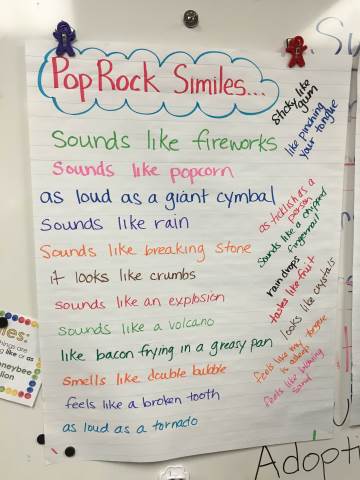 Pop Rock Similes...
Sounds like fireworks
Sounds like popcorn
as loud as a giant cymbal
Sounds like rain
Sounds like breaking stone
it looks like crumbs
sounds like an explosion
sounds like a volcano
like bacon frying in a greasy pan
smells like double bubble
feels like a broken tooth
as loud as a tornado
sticky like
gum
like pinching
your tongue
as ticklish as a
person
sounds like a chipped
fingernail
raindrops
tastes like fruit
looks like crystals
feels like my tongue
is asleep
feels like blowing
sand
nes:
things are
ng like or as
oneybee
llon
Adopti